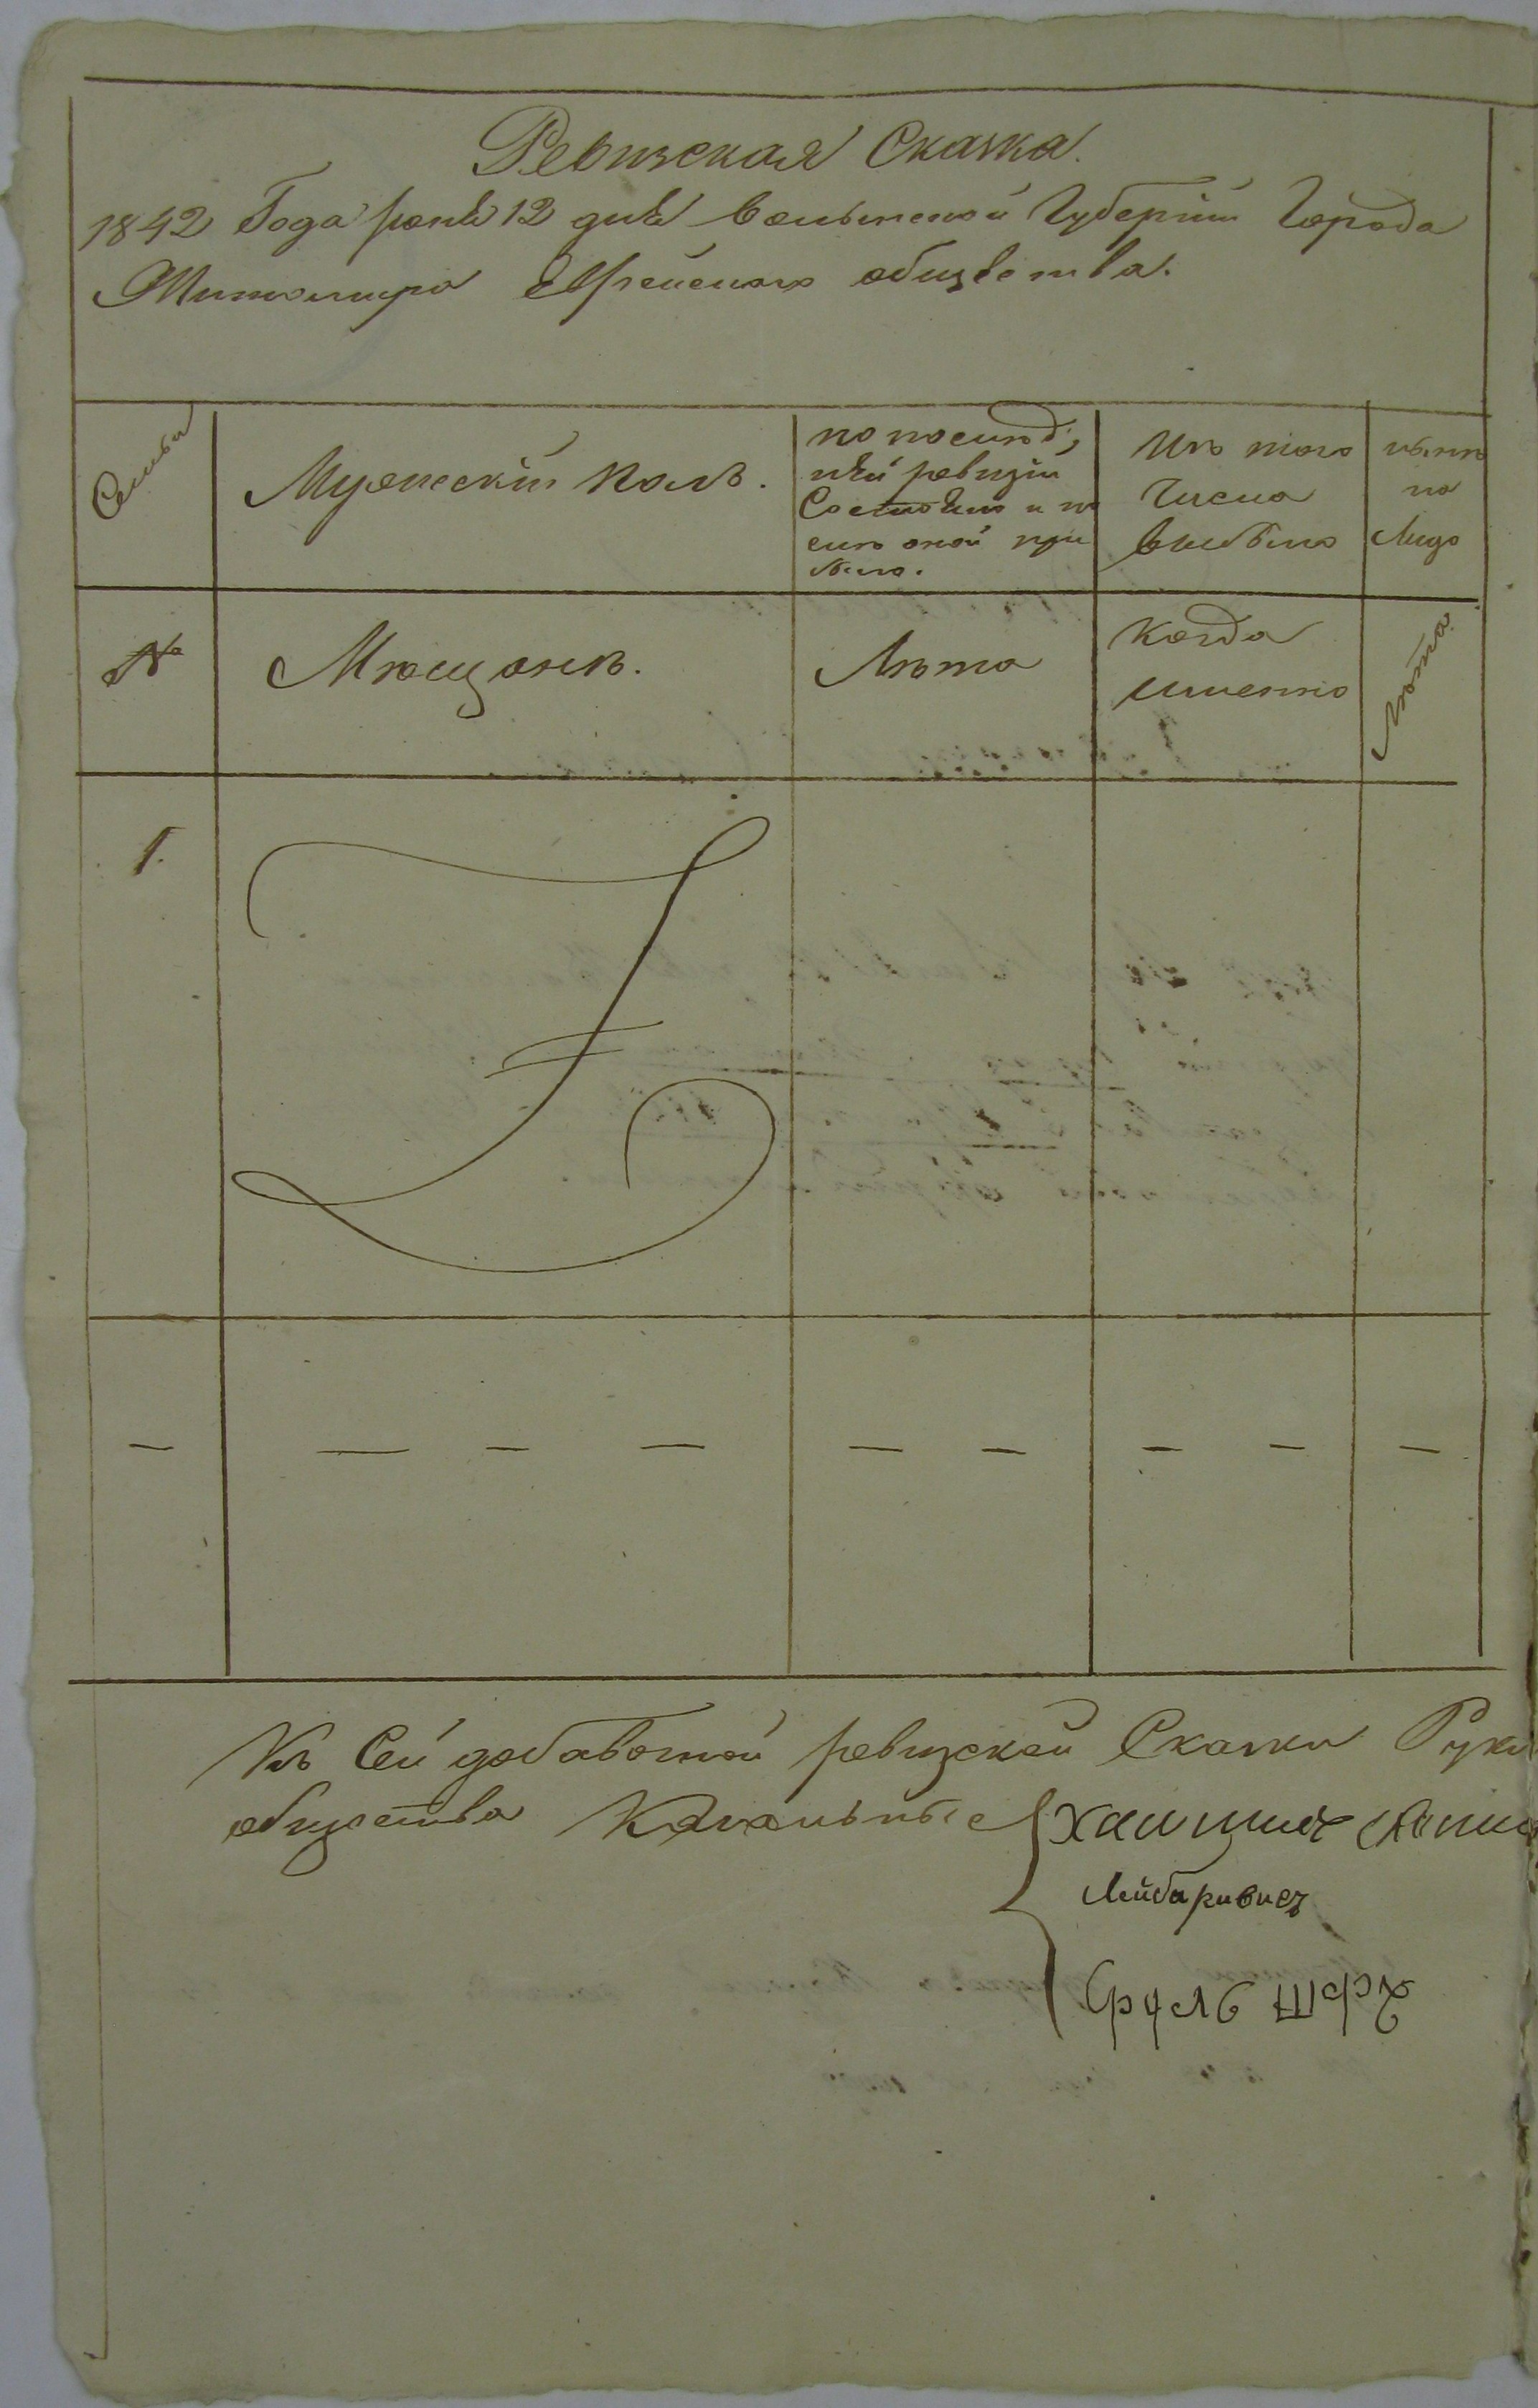 Ревизская Сказка.
1842 Года июня 12 дня Волынской Губернiи Города
Житомира Еврейского общества.
Семьи
Мужескiй полъ.
по послѣд,
нѣй ревизiи
Состояло и по
слѣ оной при
было.
Изъ того
числа
выбыло
нынѣ
на
Лицо
№
Мѣщанъ.
Лѣта
Когда
именно
Лѣта
1.
Къ Сей добавочной ревизской Сказки Руки
общества Кагальные Хаимъ